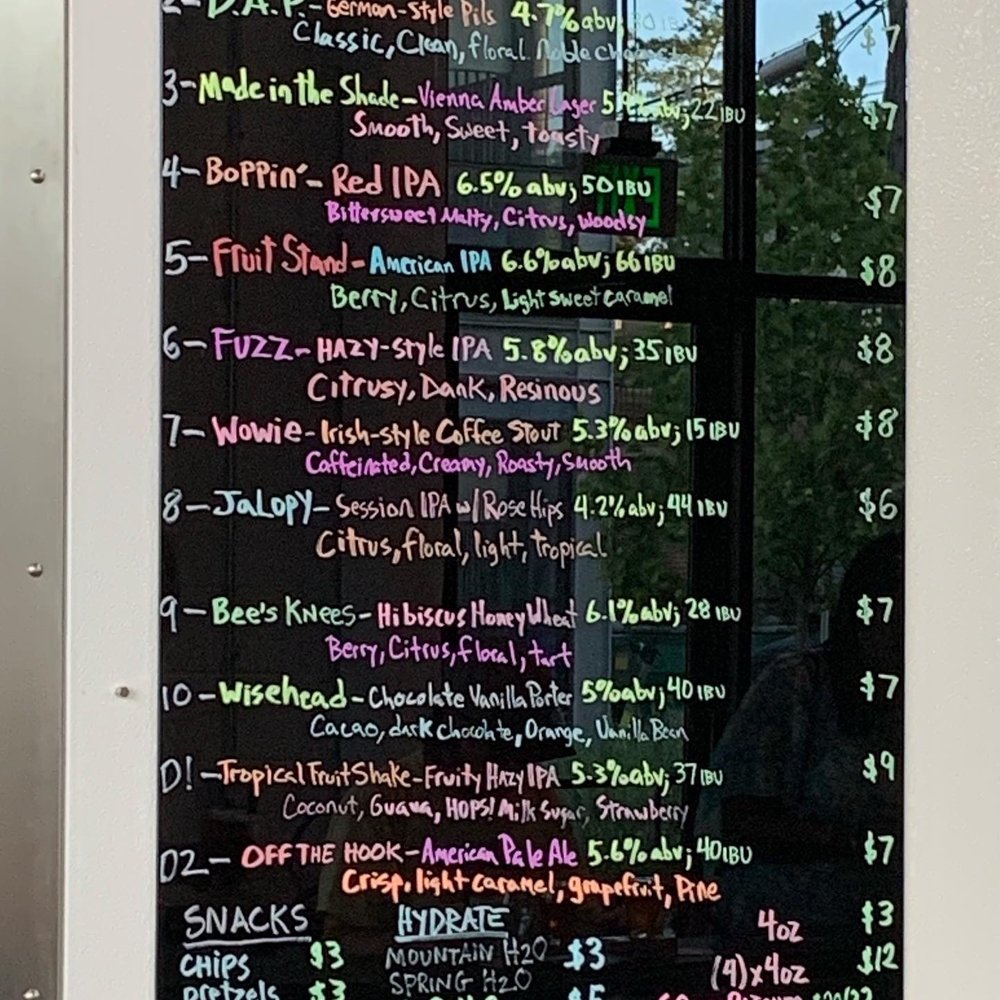 2-D.A.P.-German-Style Pils 4.7% abv; $7
Classic, Clean, floral Noble
3-Made in the Shade-Vienna Amber Lager abv; 22 IBU $7
Smooth, Sweet, toasty
4-Boppin'-Red IPA 6.5% abv; 50 IBU $7
Bittersweet Malty, Citrus, Woodsy
5-Fruit Stand-American IPA 6.6% abv; 66 IBU $8
Berry, Citrus, Light sweet caramel
6-Fuzz-HAZY-Style IPA 5.8% abv; 35 IBU $8
Citrusy, Dank, Resinous
7-Wowie-Irish-style Coffee Stout 5.3% abv; 15 IBU $8
Caffeinated, Creamy, Roasty, Smooth
8-Jalopy-Session IPA w/ Rose Hips 4.2% abv; 44 IBU $6
Citrus, floral, light, tropical
9-Bee's Knees-Hibiscus Honey Wheat 6.1% abv; 28 IBU $7
Berry, Citrus, floral, tart
10-Wisehead-Chocolate Vanilla Porter 5% abv; 40 IBU $7
Cacao, dark chocolate, Orange, Vanilla Bean
D!-Tropical Fruit Shake-Fruity HAZY IPA 5.3% abv; 37 IBU $9
Coconut, Guava, HOPS! Milk Sugar, Strawberry
D2-OFF THE HOOK-American Pale Ale 5.6% abv; 40 IBU $7
Crisp, light caramel, grapefruit, Pine
SNACKS HYDRATE 4oz $3
CHIPS $3 MOUNTAIN H2O $3 (4)x4oz $12
Pretzels $3 SPRING H2O $5